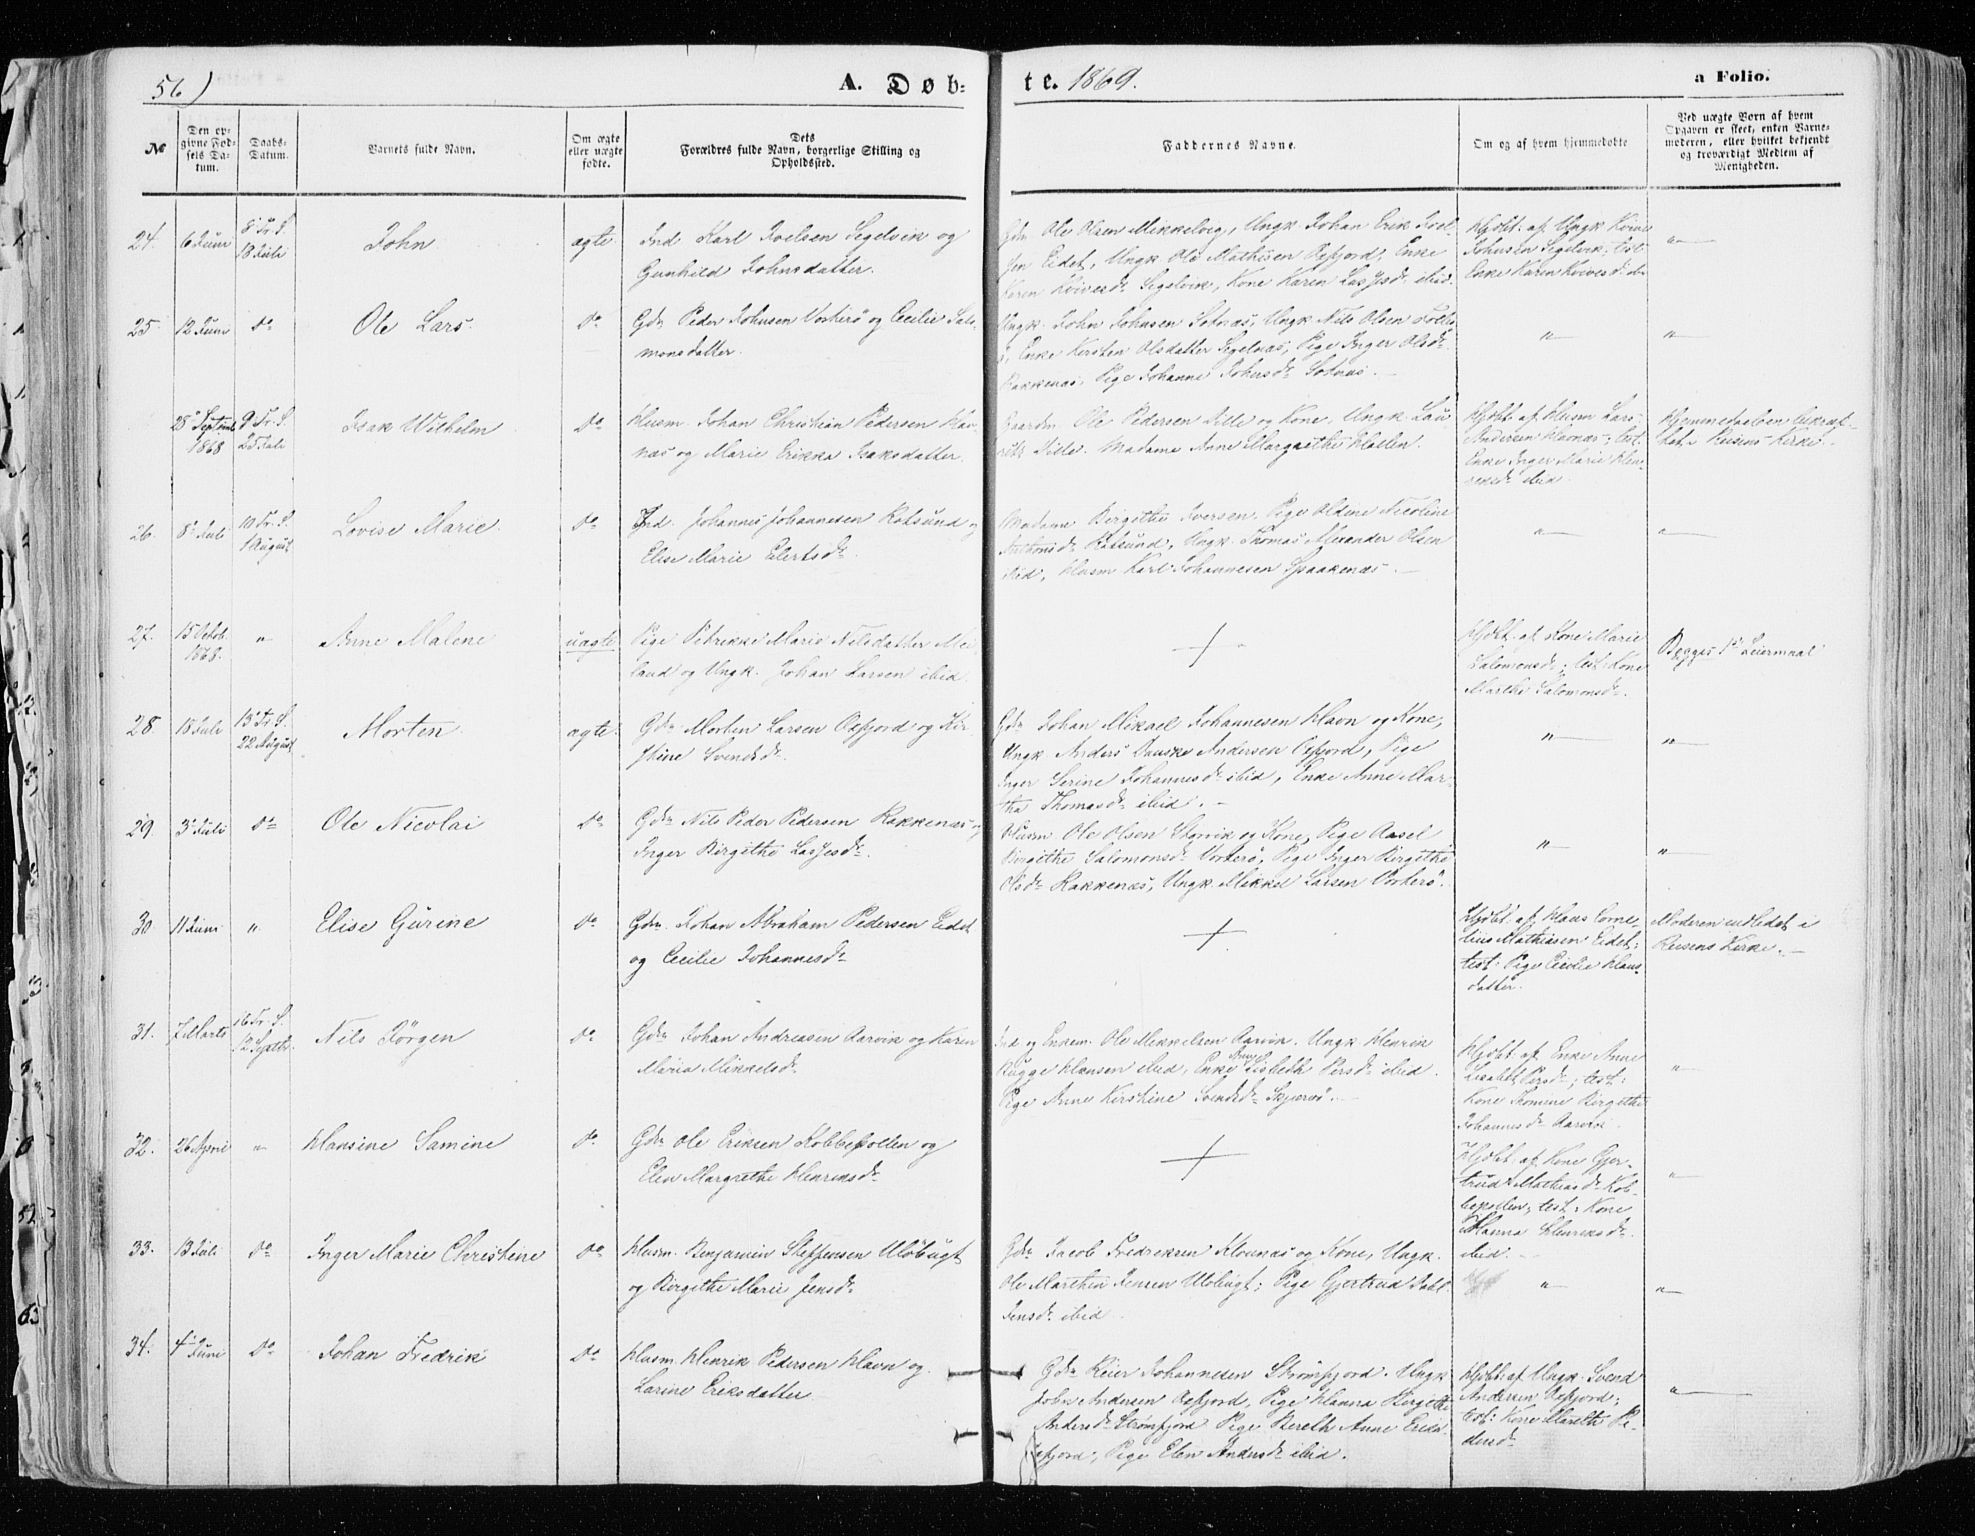 56)
A. Døb-
te. 1869.
a Folio.
No
Den op-
givne Fød-
sels Da-
tum.
Daabs-
Datum.
Barnets fulde Navn.
Om ægte
eller uægte
fødte.
Dets
Forældres fulde Navn, borgerlige Stilling og
Opholdssted.
Faddernes Navne.
Om og af hvem hjemmedøbte
Ved uægte Børn af hvem
Opgaven er skeet, enten Barne-
moderen, eller hvilket bekjendt
og troværdigt Medlem af
Menigheden.
24. 6 Juni
18 Juli
John
ægte
Ind. Karl Joelsen Segelvik og
Gunhild Johnsdatter.
Gdm Ole Olsen Mikkelvig, Ungk. Johan Erik Joel-
sen Eidet, Ungk Ole Mathisen Oxfjord, Enke
Segelvik, Kone Karen ibid.
Hjdbt. af Ungk
Johnsen Segelvik; test:
Enke Karen
"
25. 12 Juni
do
Ole Lars.
do
Gdm Peder Johnsen Vorterø og Cecilie Salo-
monsdatter.
Ungk. John Johnsen Sotnæs, Ungk Nils Olsen
Enke Kirsten Olsdatter Segelnæs, Pige Inger Olsdr
Rakkenæs, Pige Johanne Johnsdr Sotnæs.
"
"
28 Septemb
1868
9 Tr. S.
25 Juli
Isak Wilhelm
do
Husm. Johan Christian Pedersen Hav-
næs og Marie Erikka Isaksdatter.
Gaardm. Ole Pedersen og Kone. Ungk. Lau-
Madame Anne Margrethe
Hjdbt. af Husm Lars
Andersen Havnæs; test.
Enke Inger Marie Hen-
riksdr ibid.
Hjemmedaaben
Reisens Kirke.
26. 8 Juli
10 Tr. S.
1 August
Lovise Marie.
do
Ind. Johannes Johannesen Rotsund og
Elise Marie Eilertsdr.
Madame Birgithe Iversen. Pige Oldine Nicoline
Antonsdr Rotsund, Ungk. Thomas Alexander Olsen
ibid, Husm Karl Johannesen Spaakenæs.
"
"
27. 15 Octob.
1868.
"
Anne Malene
uægte
Pige Petrikke Marie Nilsdatter Mei-
land og Ungk. Johan Larsen ibid.
Hjdbt. af Kone Marie
Salomonsdr; test: Kone
Marthe Salomonsdr.
Begges 1ste Leiermaal
28. 18 Juli
13 Tr. S.
22 August
Morten
ægte
Gdm Morten Larsen Oxfjord og Kir-
stine Svendsdr.
Gdm Johan Mikael Johannesen Havn og Kone,
Ungk Anders Andersen Oxfjord, Pige
Inger Serine Johannesdr ibid, Enke Anne Mar-
tha Thomasdr ibid.
"
"
29. 3 Juli
do
Ole Nicolai
do
Gdm Nils Peder Pedersen Rakkenæs og
Inger Birgithe Lassesdr.
Husm Ole Olsen Storvik og Kone, Pige Aasel
Birgithe Salomonsdr Vorterø, Pige Inger Birgithe
Olsdr Rakkenæs, Ungk. Mikkel Larsen Vorterø.
"
"
30. 11 Juni
"
Elise Gurine
do
Gdm. Johan Abraham Pedersen Eidet
og Cecilie Johannesdr
Hjdbt. af Klaus Corne-
lius Mathisen Eidet;
test: Pige Cecilia Klaus-
datter.
Moderen indledet i
Reisens Kirke.
31. 7 Marts
16 Tr. S.
12 Septbr.
Nils Jörgen
do
Gdm Johan Andreasen Aarvik og Karen
Maria Mikkelsdr.
Ind og Enkem. Ole Mikkelsen Aarvik. Ungk. Henrik
Bugge Hansen ibid, Enke Anne Lisbeth Persdr ibid.
Pige Anne Kirstine Svendsdr Skjærvø.
Hjdbt. af Enke Anne
Lisabeth Persdr; test:
Kone Thomine Birgithe
Johannesdr Aarvik.
"
32. 26 April
"
Hansine Samine
do
Gdm Ole Eriksen Kobbepollen og
Elen Margrethe Henriksdr
Hjdbt. af Kone Gjer-
trud Mathiasdr Kob-
bepollen; test: Kone
Hanna Henriksdr
ibid.
"
33. 13 Juli
do
Inger Marie Christine
do
Husm. Benjamin Steffensen Uløbugt
og Birgithe Marie Jensdr
Gdm Jacob Fredriksen Klovnæs og Kone, Ungk.
Ole Marthin Jensen Uløbugt; Pige Gjertrud
Jensdr ibid.
"
"
34. 4 Juni
do
Johan Fredrik
do
Husm. Henrik Pedersen Havn og
Larine Eriksdatter
Gdm Johannesen Strømfjord. Ungk
John Andersen Oxfjord, Pige Hanna Birgithe
Andersdr Strømfjord Pige Bereth Anne
Oxfjord, Pige Elen Andersdr ibid.
Hjdbt: af Ungk. Svend
Andersen Oxfjord;
test: Kone Mareth Pe-
dersdr
"